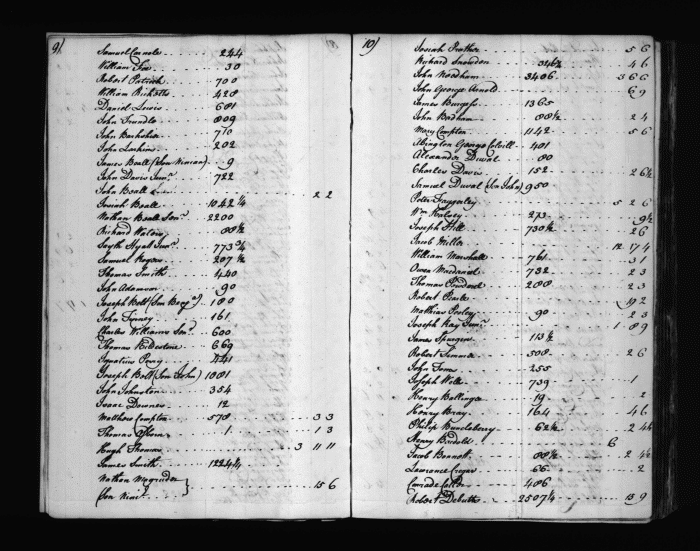 9/
Samuel 244
William Fox 30
Robert Patrick 700
William Ricketts 428
Daniel Lewis 681
John Trundle 809
John Barkshire 770
John 202
James Beall (Son Ninian) 9
John Davis Junr. 722
John Beall 2 2
Josiah Beall 1042 3/4
Nathan Beall Senr. 2200
Richard Waters 88 1/2
Seyth Hyatt Junr. 773 3/4
Samuel Rogers 207 1/2
Thomas Smith 440
John Adamson 90
Joseph Bolt (Son Benja.) 180
John Tenney 161
Charles Williams Senr. 600
Thomas 660
Ignatius Perry 441
Joseph Bolt (Son John) 1081
John Johnston 354
Isaac Downes 12
Matthew Compton 578 3 3
Thomas 1 1 3
Hugh Thomas 3 11 11
James Smith 1224 1/4
Nathan Magruder
(Son Nini. } 15 6
10/
Josiah Prather 5 6
Richard Snowden 346 1/2 4 6
John Needham 3406 3 6 6
John George Arnold 6 9
James Burgess 1365
John Badham 88 1/2 2 4
Mary Compton 1142 5 6
Abington George Colvill 401
Alexander Duval 80
Charles Davis 152 2 6 1/2
Samuel Duval (Son John) 950
Peter 5 2 6
Wm. Halsey 273 9 1/2
Joseph Hill 730 1/2 2 6
Jacob Miller 12 17 4
William Marshall 761 3 1
Owen Macdaniel 732 2 3
Thomas 288 2 3
Robert Pearle 19 2
Mathias 90 2 3
Joseph Ray Senr. 1 8 9
James Spurgen 113 1/2
Robert 508 2 6
John 255
Joseph Wells 739 1
Henry Ballinger 19 2
Henry Bray 164 4 6
Philip 62 1/2 2 4 1/2
Henry 6
Jacob Bennett 88 1/2 2 4 1/2
Lawrance Creger 66 2
Conrade 486
Robert Debutts 2507 1/4 13 9